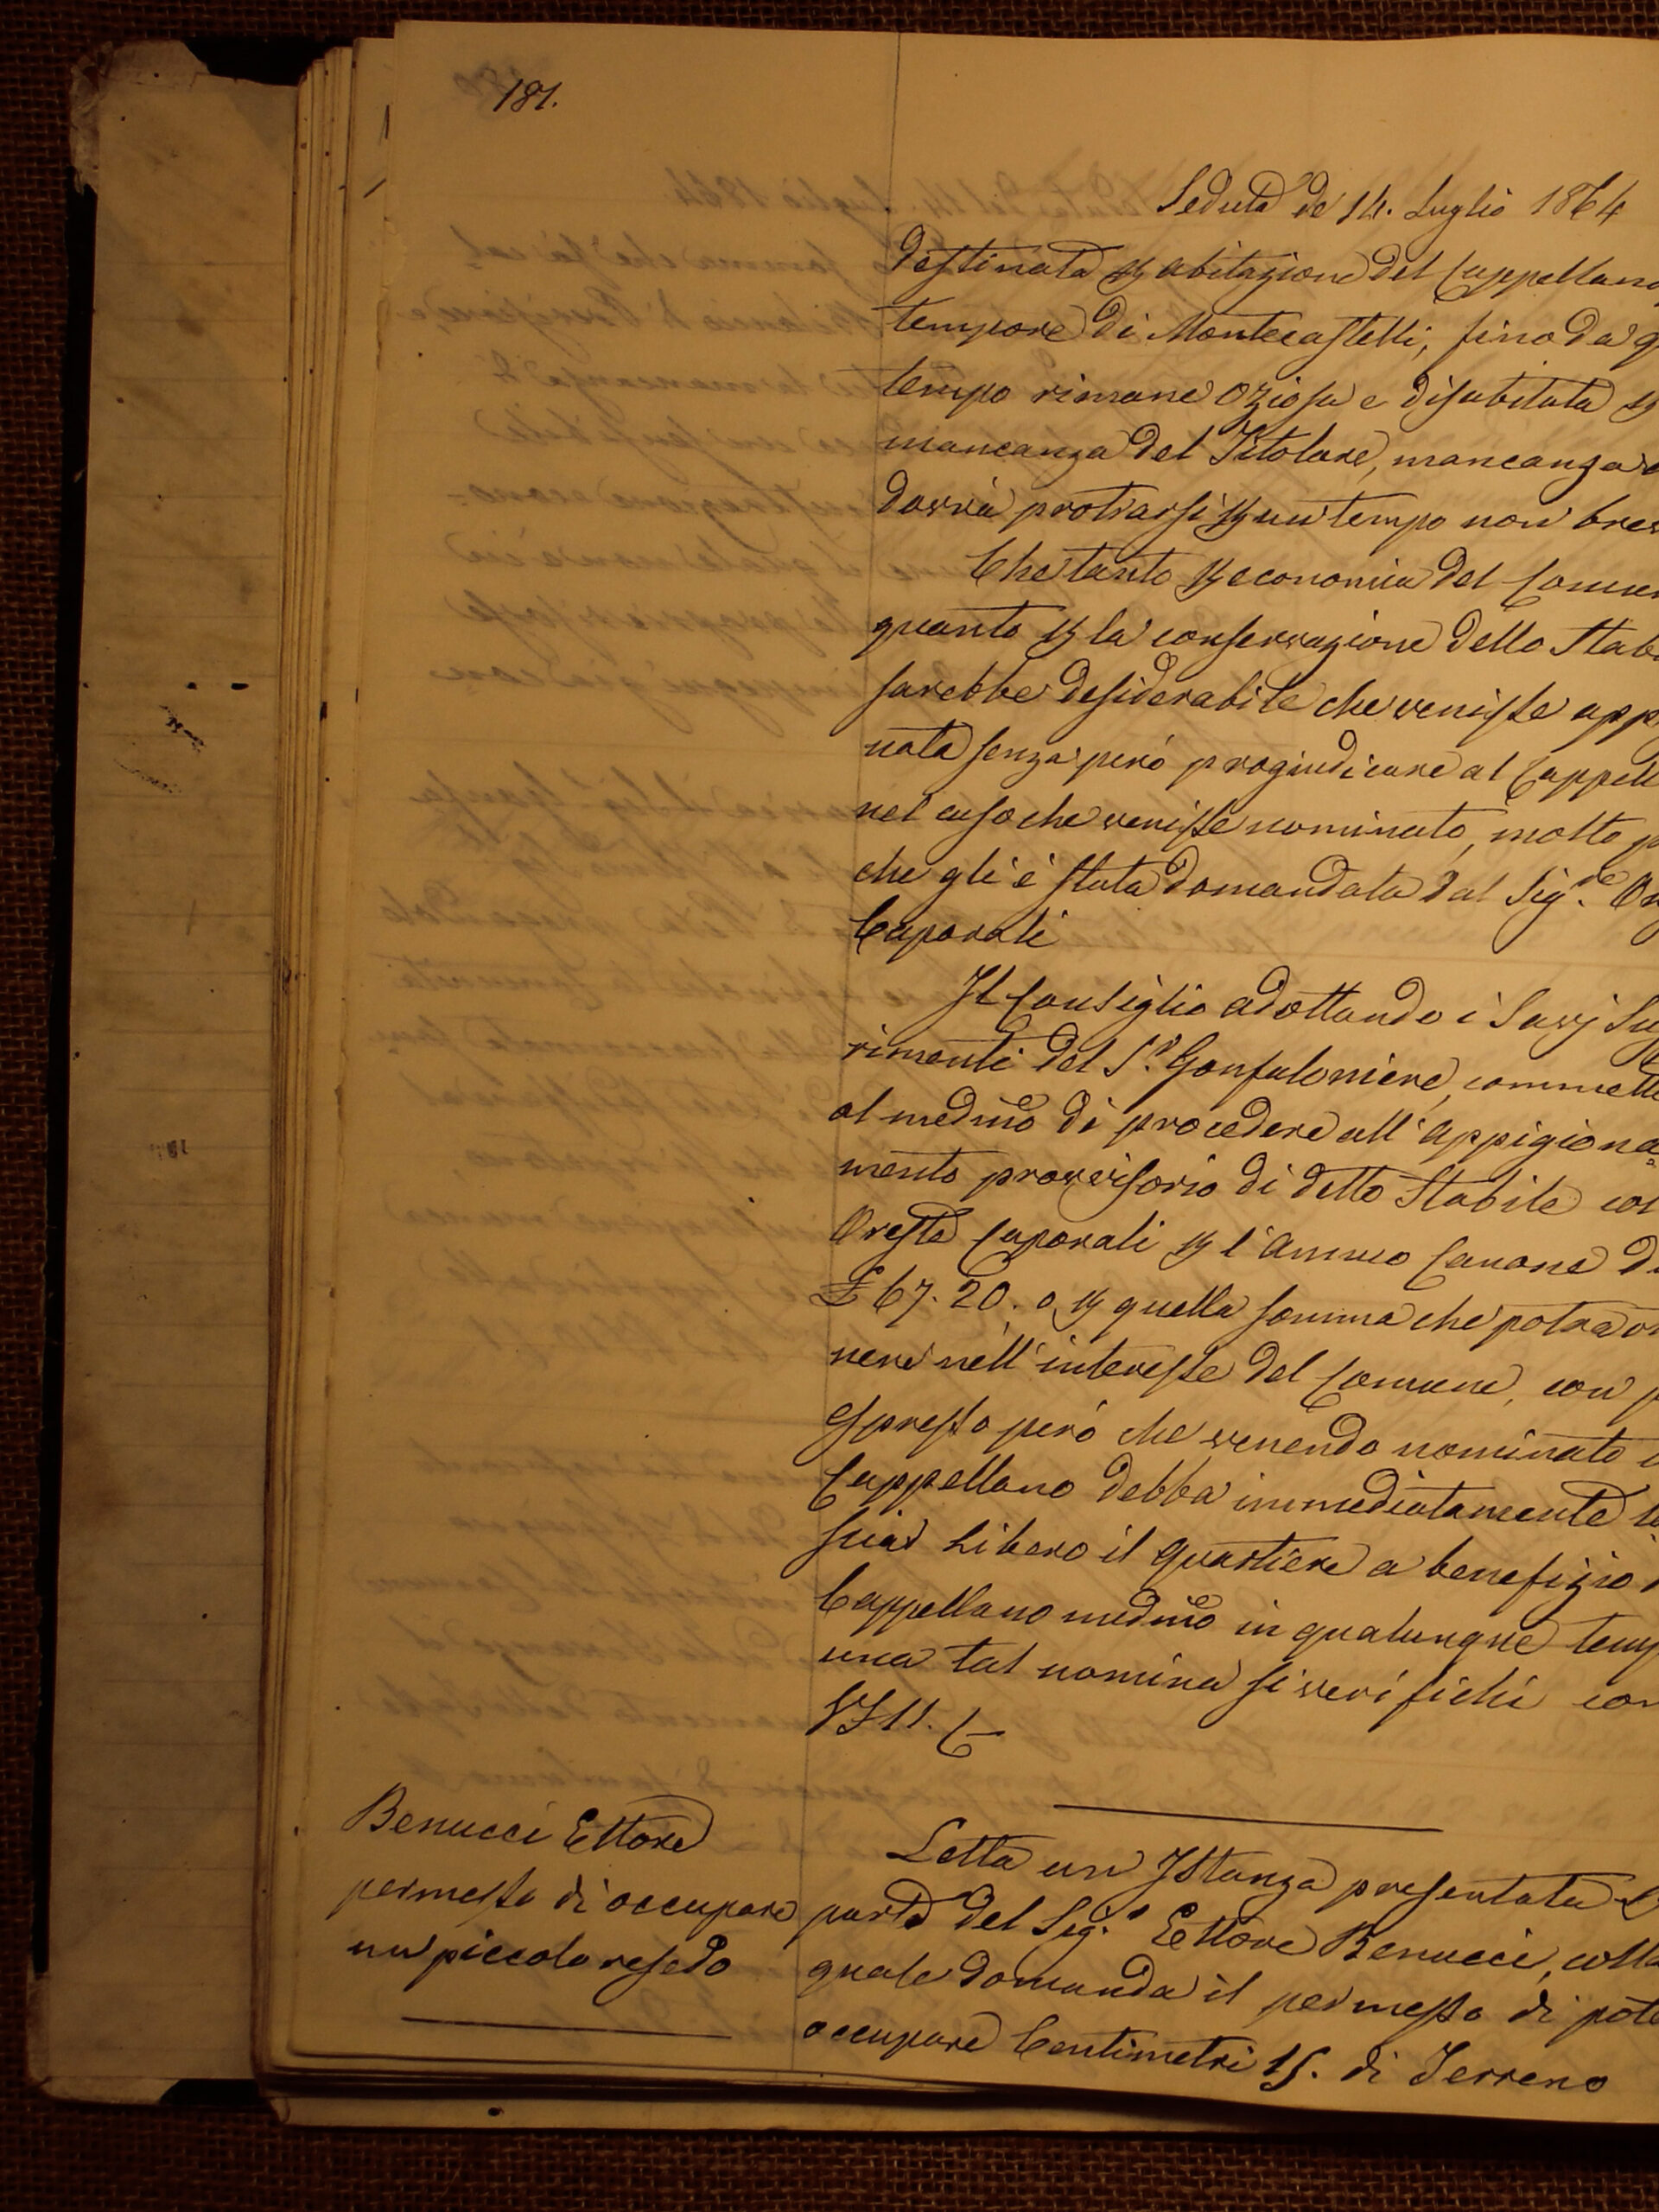 181.
Seduta de' 14. Luglio 1864
destinata p abitazione del Cappellano
tempore di Montecastelli, fino da q
tempo rimane oziosa e disabitata p
mancanza del Titolare, mancanza
dovrà protrarsi p un tempo non brev
Che tanto p economia del Comun
quanto p la conservazione dello Stabi
sarebbe desiderabile che venisse app
nata senza però progiudicare al Cappell
nel caso che venisse nominato, molto p
che gli è stata domandata dal Sig.re Or
Caporali
Il Consiglio adottando i Savj Sug
rimenti del S.r Gonfaloniere, commette
al medmo di procedere all'appigiona
mento provvisorio di detto Stabile con
Oreste Caporali p l'annuo Canone di
£ 67. 20. o p quella somma che potrà ot
nere nell'interesse del Comune, con p
espresso però che venendo nominato
Cappellano debba immediatamente la
sciar libero il quartiere a benefizio
Cappellano medmo in qualunque temp
una tal nomina si verifichi con
Benucci Ettore
permesso di occupare
un piccolo resedo
Letta un Istanza presentata
parte del Sig.r Ettore Benucci, colla
quale domanda il permesso di pote
occupare Centimetri 15. di Terreno